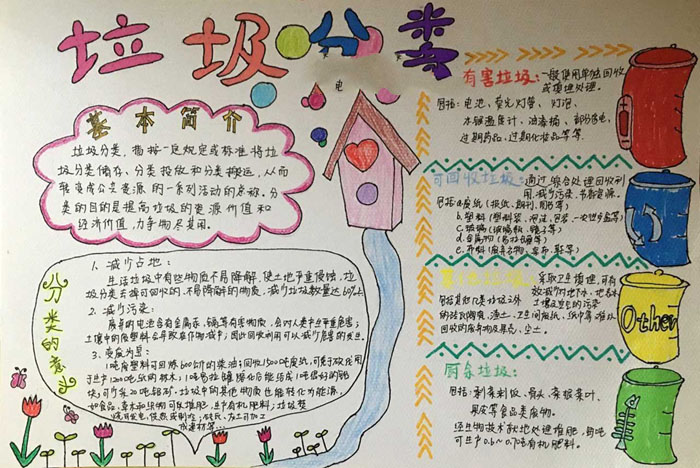 垃圾分类
电
基本简介
垃圾分类，指按一定规定或标准将垃
圾分类储存、分类投放和分类搬运，从而
转变成公共资源的一系列活动的总称，分
类的目的是提高垃圾的资源价值和
经济价值，力争物尽其用。
分类的意义
1、减少占地：
生活垃圾中有些物质不易降解，使土地严重侵蚀，垃
圾分类去掉可回收的、不易降解的物质，减少垃圾数量达60%
2、减少污染：
废弃的电池含有金属汞、镉等有害物质，会对人类产生严重危害；
土壤中的废塑料会导致农作物减产；因此回收利用可以减少危害的发生。
3、变废为宝：
1吨废塑料可回炼600公斤的柴油；回收1500吨废纸，可免于砍伐用
于生产1200吨纸的林木；1吨易拉罐熔化后能结成1吨很好的铝
块，可少采20吨铝矿。垃圾中的其他物质也能转化为资源，
如食品、草木和织物可以堆肥，生产有机肥料；垃圾焚
有害垃圾：一般使用单独回收
或填埋处理。
包括：电池、荧光灯管、灯泡、
水银温度计、油漆桶、部分家电、
过期药品、过期化妆品等等。
可回收垃圾：通过综合处理回收利
用，减少污染，节省资源。
包括a.废纸（报纸、期刊、
b.塑料（塑料袋、
c.玻璃（玻璃瓶、镜子等）
d.金属物（易拉罐等）
e.布料（
采取卫生填埋，可有
效减少对地下水、地表水
土壤及空气的污染
包括其他几类垃圾之外
的砖瓦陶瓷、渣土、卫生间废纸、纸巾等难以
回收的废弃物及果壳、尘土。
Other
厨余垃圾：
包括：剩菜剩饭、骨头、菜根菜叶、
果皮等食品类废物。
经生物技术就地处理堆肥，每吨
可生产0.6~0.7吨有机肥料。